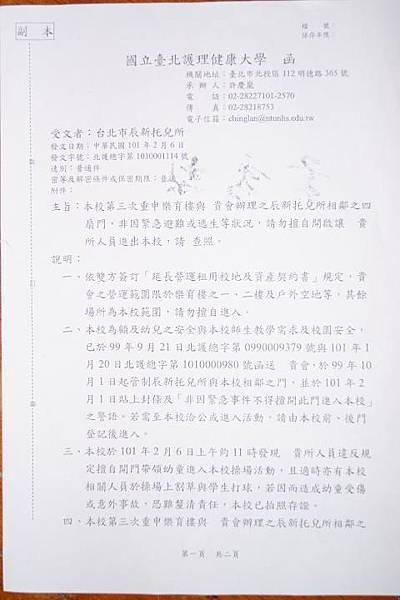 副 本
檔 號：
保存年限：
國立臺北護理健康大學 函
機關地址：臺北市北投區112明德路365號
承 辦 人：許慶嵐
電 話：02-28227101-2570
傳 真：02-28218753
電子信箱：chinglan@ntunhs.edu.tw
受文者：台北市辰新托兒所
發文日期：中華民國101年2月6日
發文字號：北護總字第1010001114號
速別：普通件
密等及解密條件或保密期限：普通
附件：
主旨：本校第三次重申樂育樓與 貴會辦理之辰新托兒所相鄰之四
扇門，非因緊急避難或逃生等狀況，請勿擅自開啟讓 貴
所人員進出本校，請 查照。
說明：
一、依雙方簽訂「延長營運租用校地及資產契約書」規定，貴
會之營運範圍限於樂育樓之一、二樓及戶外空地等，其餘
場所為本校範圍，請勿擅自進入。
二、本校為顧及幼兒之安全與本校師生教學需求及校園安全，
已於99年9月21日北護總字第0990009379號與101年1
月20日北護總字第1010000980號函送 貴會，於99年10
月1日起管制辰新托兒所與本校相鄰之門，並於101年2
月1日貼上封條及「非因緊急事件不得擅開此門進入本校」
之警語。若需至本校洽公或進入活動，請由本校前、後門
登記後進入。
三、本校於101年2月6日上午約11時發現 貴所人員違反規
定擅自開門帶領幼童進入本校操場活動，且適時亦有本校
相關人員於操場上割草與學生打球，若因而造成幼童受傷
或意外事故，恐難釐清責任，本校已拍照存證。
四、本校第三次重申樂育樓與 貴會辦理之辰新托兒所相鄰之
第一頁 共二頁